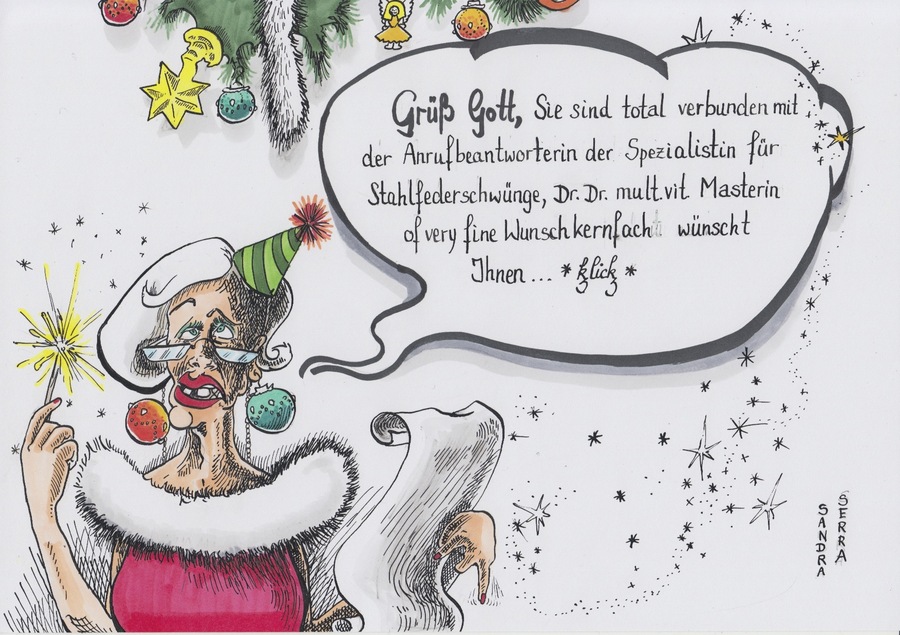 Grüß Gott, Sie sind total verbunden mit
der Anrufbeantworterin der Spezialistin für
Stahlfederschwünge, Dr. Dr. mult. vit. Masterin
of very fine Wunschkernfach wünscht
Ihnen... *klick*
SANDRA
SERRA